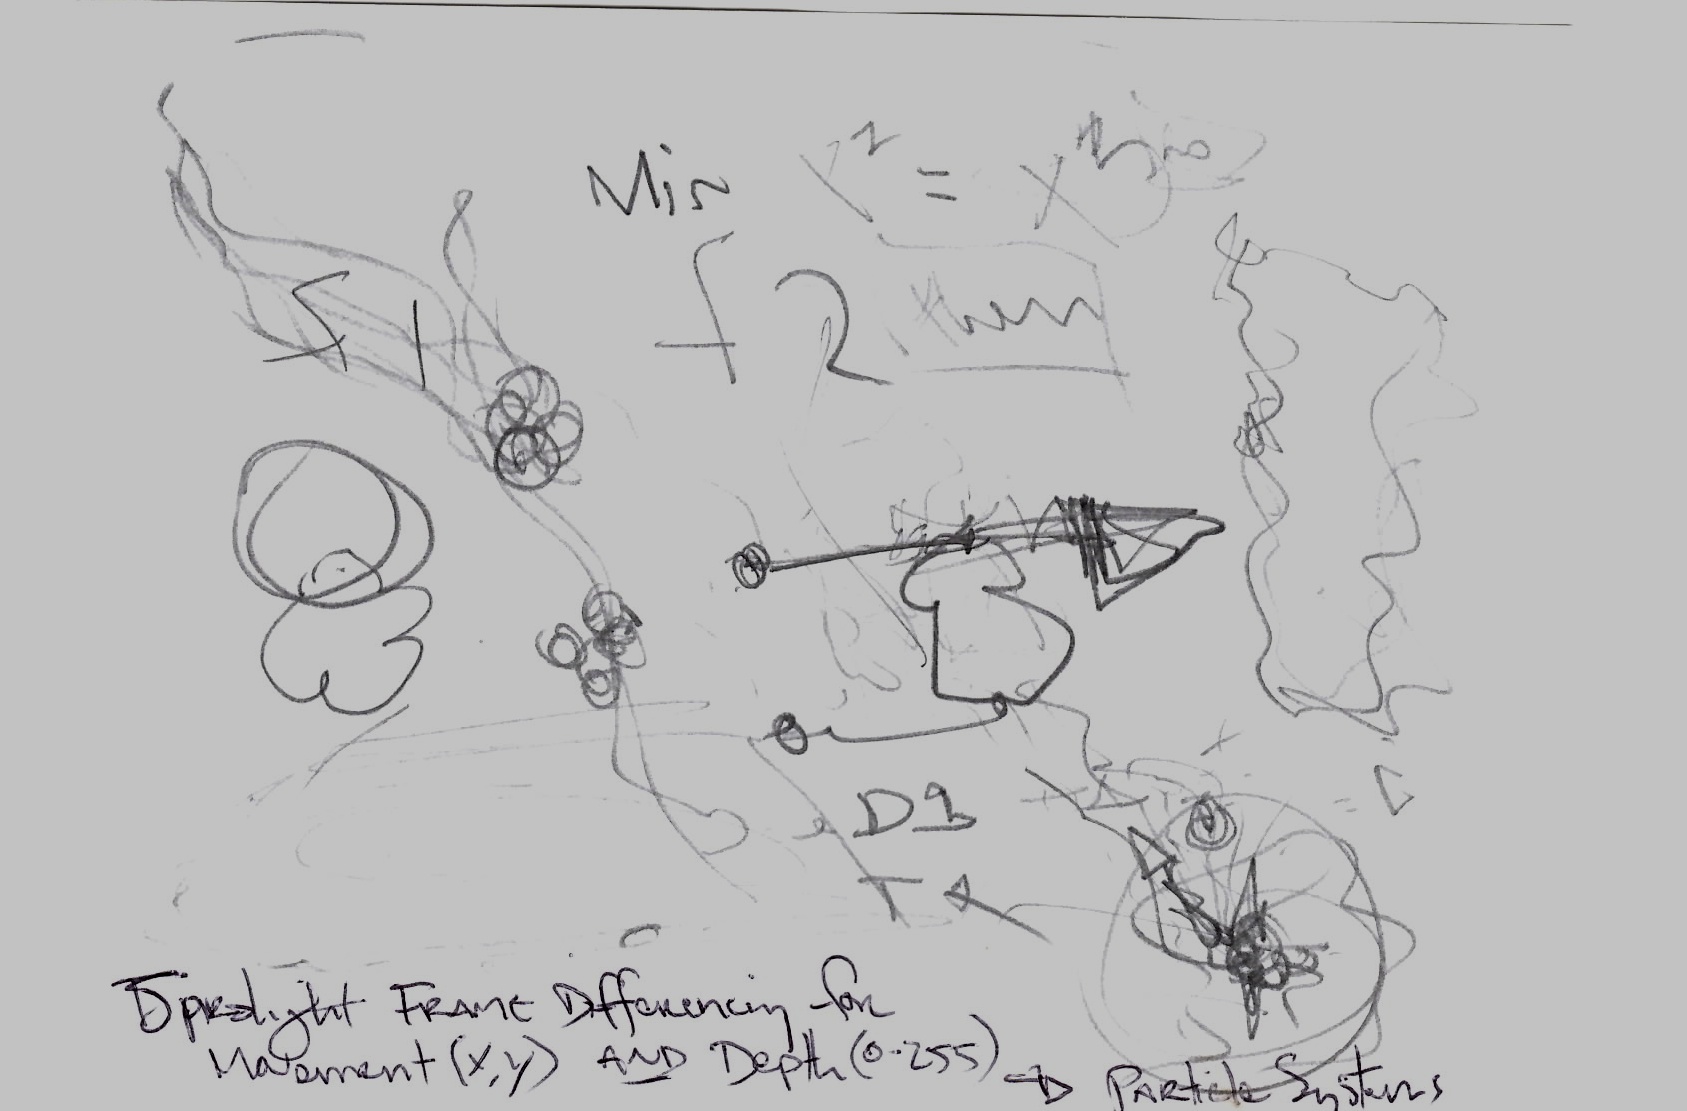 Min
f 2 then
f 1
D1
T
Frame Differencing for
Movement (x,y) AND Depth (0-255) → Particle Systems